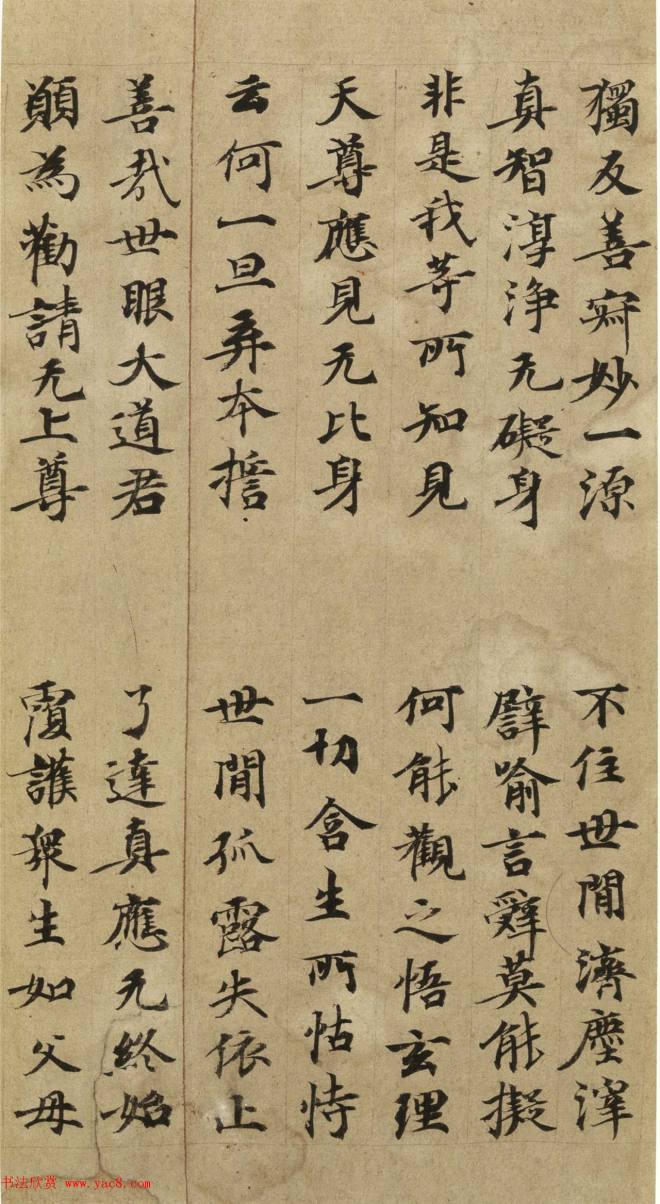 獨反善寂妙一源
不住世間濟塵滓
真智淳淨无礙身
譬喻言辭莫能擬
非是我等所知見
何能觀之悟玄理
天尊應見无比身
一切含生所怙恃
云何一旦棄本擔
世間孤露失依止
善哉世眼大道君
了達真應无終始
願為勸請无上尊
覆護眾生如父母
书法欣赏 www.yac8.com